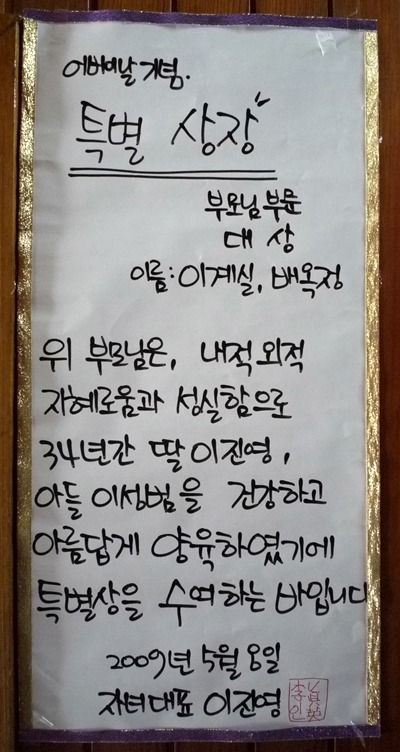 어버이날 기념.
특별 상장
부모님부문
대상
이름: 이계실, 배옥정
위 부모님은, 내적외적
지혜로움과 성실함으로
34년간 딸 이진영,
아들 이성범을 건강하고
아름답게 양육하였기에
특별상을 수여하는 바입니다
2009년 5월 8일
자녀대표 이진영